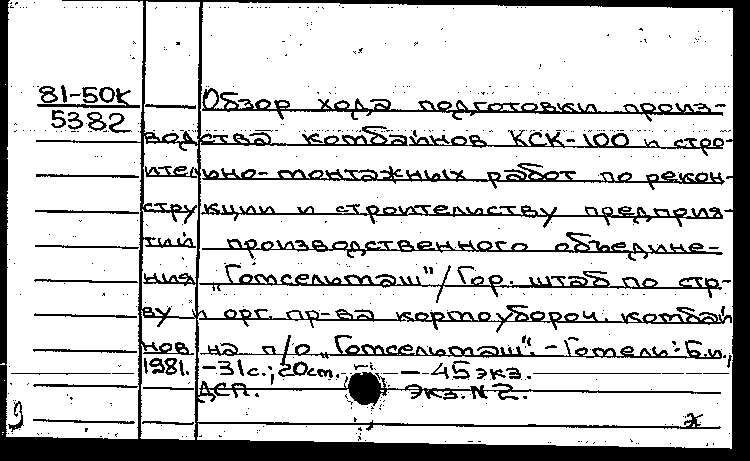 81-50К
5382
Обзор хода подготовки произ-
водства комбайнов КСК-100 и стро-
ительно-монтажных работ по рекон-
струкции и строительству предприя-
тий производственного объедине-
ния „Гомсельмаш"/Гор. штаб по стр-
ву и орг. пр-ва кормоубороч. комбай
нов на п/о „Гомсельмаш". - Гомель: Б.и.,
1981. - 31с.; 20см. - 45 экз.
ДСП. Экз. N 2.